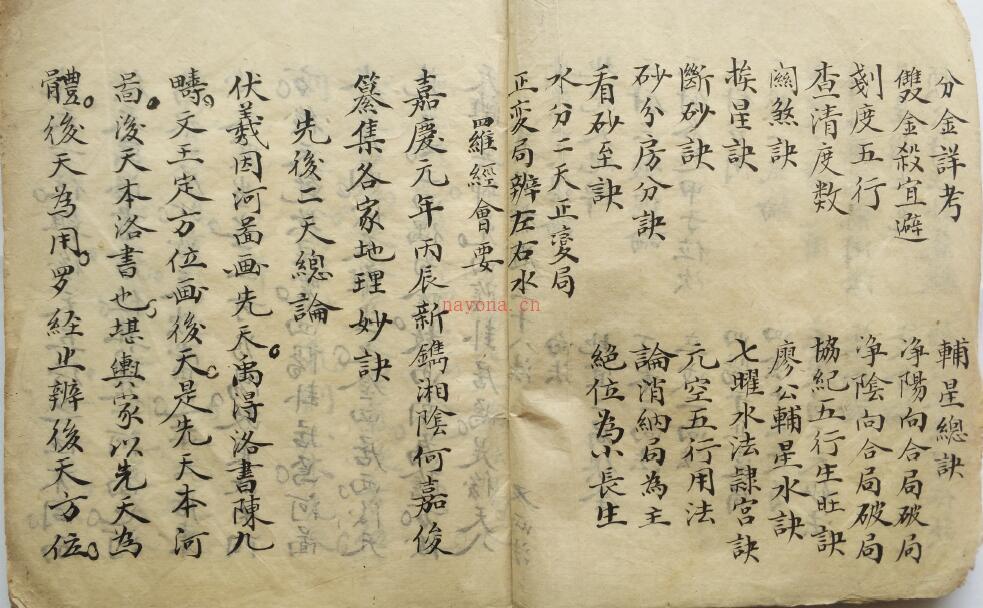 分金詳考
雙金殺宜避
刻度五行
查清度数
煞訣
挨星訣
斷砂訣
砂分房分訣
看砂至訣
水分二天正变局
正变局辨左右水
輔星總訣
净陽向合局破局
净陰向合局破局
協紀五行生旺訣
廖公輔星水訣
七曜水法隷宮訣
元空五行用法
論消納局為主
絕位為小長生
四維經會要
嘉慶元年丙辰新鐫湘陰何嘉俊
纂集各家地理妙訣
先後二天總論
伏羲因河啚画先天禹淂洛書陳九
疇文王定方位画後天是先天本河
啚後天本洛書也堪輿家以先天為
體後天為用罗經止辨後天方位
nayona.ch